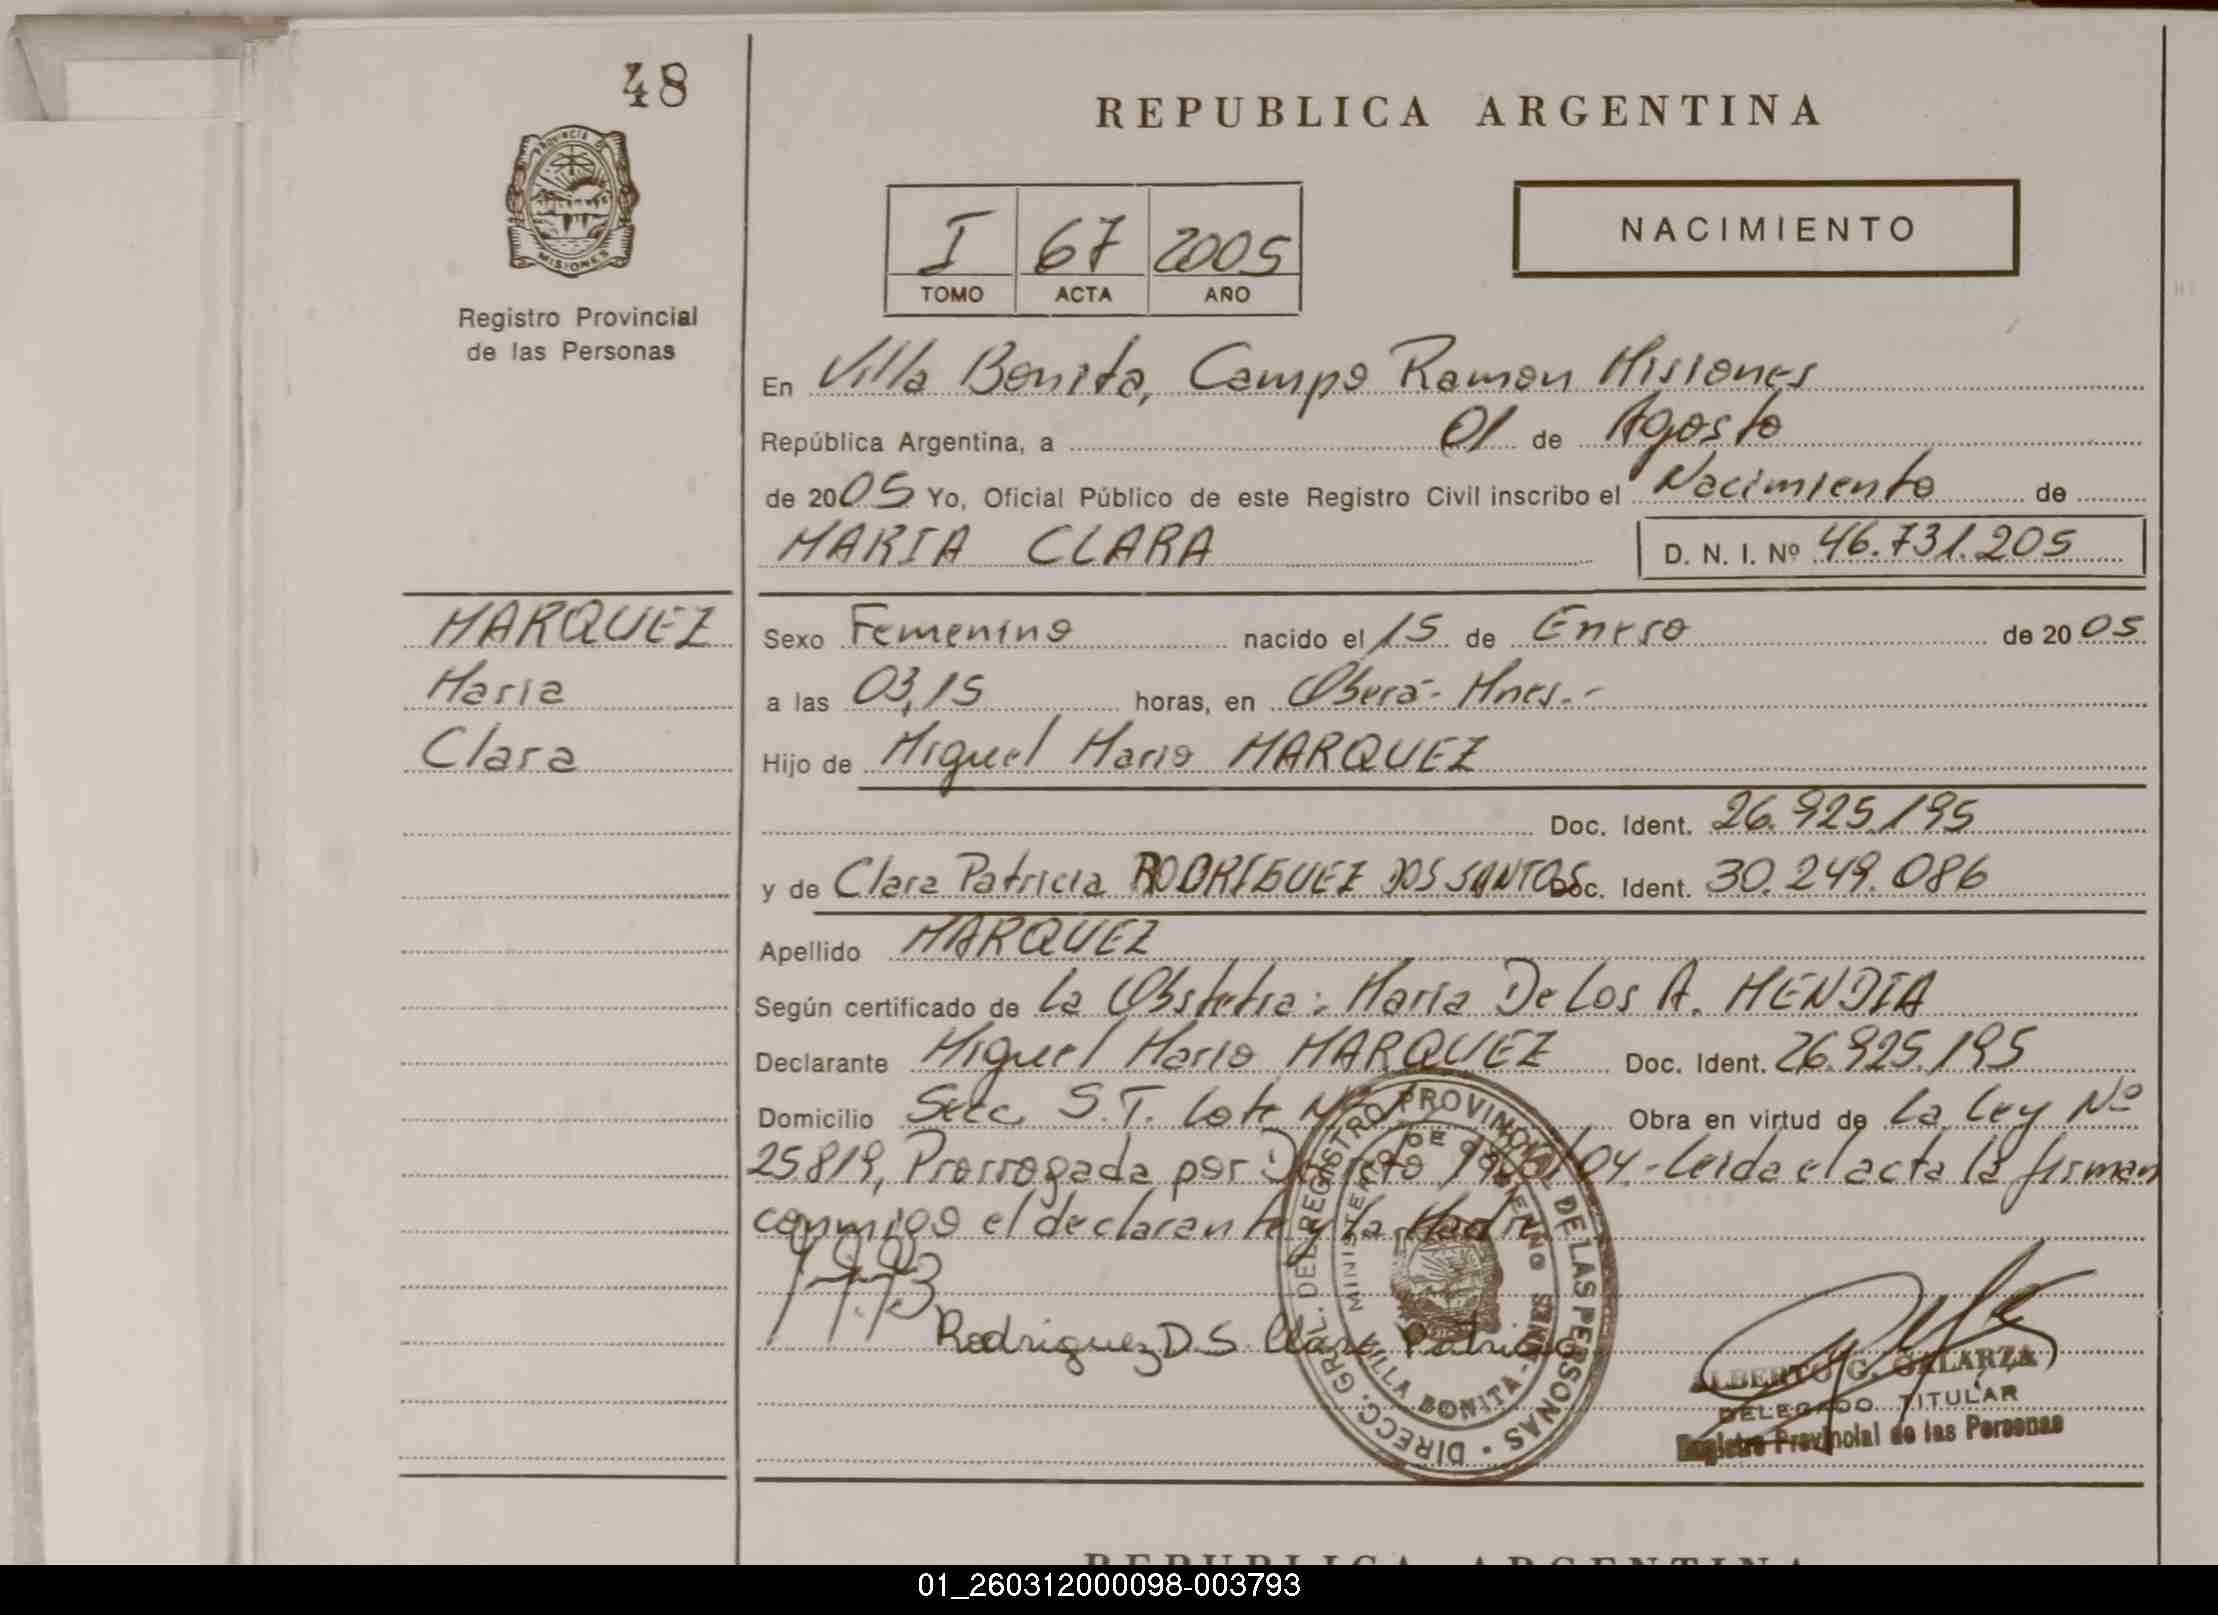 48
REPUBLICA ARGENTINA
PROVINCIA DE
MISIONES
Registro Provincial
de las Personas
I 67 2005
TOMO ACTA AÑO
NACIMIENTO
En Villa Bonita, Campo Ramon Misiones
República Argentina, a 01 de Agosto
de 2005 Yo, Oficial Público de este Registro Civil inscribo el Nacimiento de
MARIA CLARA D. N. I. Nº 46.731.205
MARQUEZ
Maria
Clara
Sexo Femenino nacido el 15 de Enero de 2005
a las 03,15 horas, en Oberá- Mnes.-
Hijo de Miguel Mario MARQUEZ
Doc. Ident. 26.925.195
y de Clara Patricia RODRIGUEZ DOS SANTOS Doc. Ident. 30.249.086
Apellido MARQUEZ
Según certificado de La Obstetra: Maria De Los A. MENDIA
Declarante Miguel Mario MARQUEZ Doc. Ident. 26.925.195
Domicilio Secc. S.T. Lote Nº Obra en virtud de La Ley Nº
25.819, Prorrogada por Decreto /04.- Leida el acta la firman
conmigo el declarante y la Madre
Rodriguez D.S. Clara Patricia
DIRECC. GRAL. DEL REGISTRO PROVINCIAL DE LAS PERSONAS
MINISTERIO DE GOBIERNO
VILLA BONITA - MNES
ALBERTO G. GALARZA
DELEGADO TITULAR
Registro Provincial de las Personas
REPUBLICA ARGENTINA
01_260312000098-003793